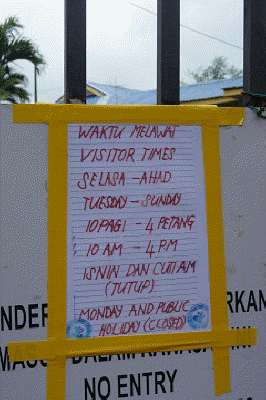 WAKTU MELAWAT
VISITOR TIMES
SELASA - AHAD
TUESDAY - SUNDAY
10 PAGI - 4 PETANG
10 AM - 4 PM
ISNIN DAN CUTI AM
(TUTUP)
MONDAY AND PUBLIC
HOLIDAY (CLOSED)
NO ENTRY